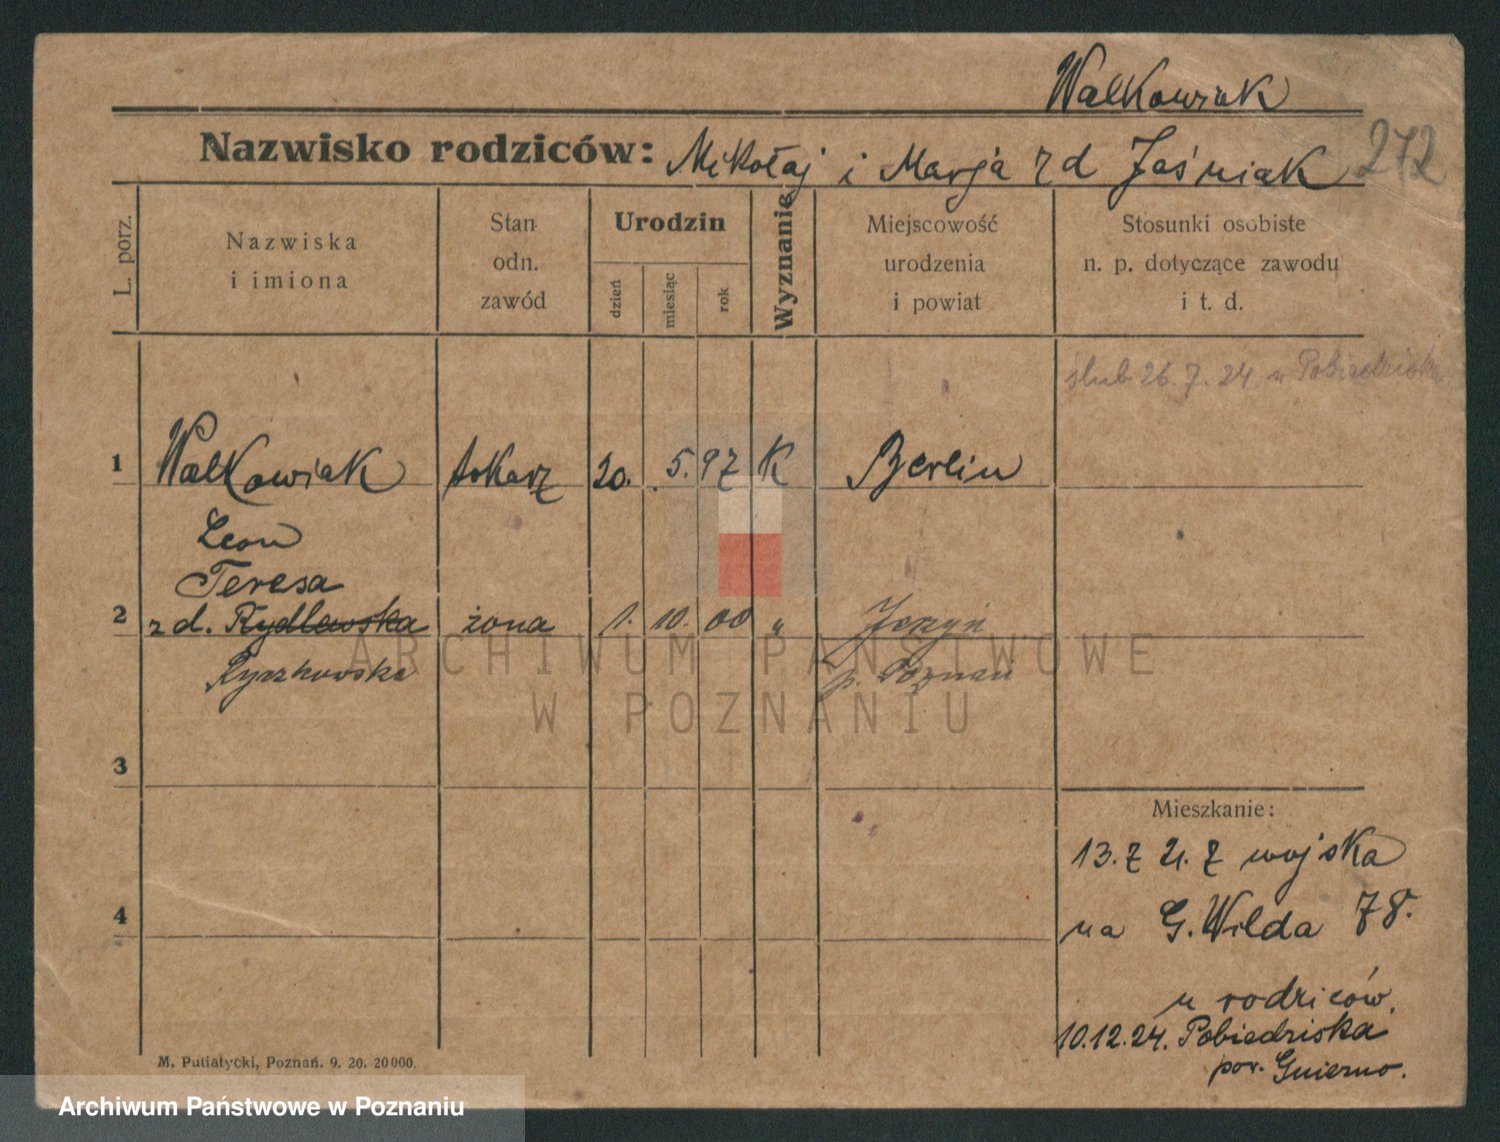 Walkowiak
Nazwisko rodziców: Mikołaj i Marja z d Jaśniak 272
L. porz.
Nazwiska
i imiona
Stan
odn.
zawód
Urodzin
dzień
miesiąc
rok
Wyznanie
Miejscowość
urodzenia
i powiat
Stosunki osobiste
n. p. dotyczące zawodu
i t. d.
ślub 26.7.24 w Pobiedziska
1 Walkowiak tokarz 20. 5. 97 K Berlin
Leon
Teresa
2 z d. Rydlewska żona 1. 10. 00 „ Jerzyń
Ryszkowska p. Poznań
ARCHIWUM PAŃSTWOWE
W POZNANIU
3
Mieszkanie:
13. 7 21. z wojska
4
na G. Wilda 78.
u rodziców.
10.12.24. Pobiedziska
pow. Gniezno.
M. Putiatycki, Poznań. 9. 20. 20000.
Archiwum Państwowe w Poznaniu